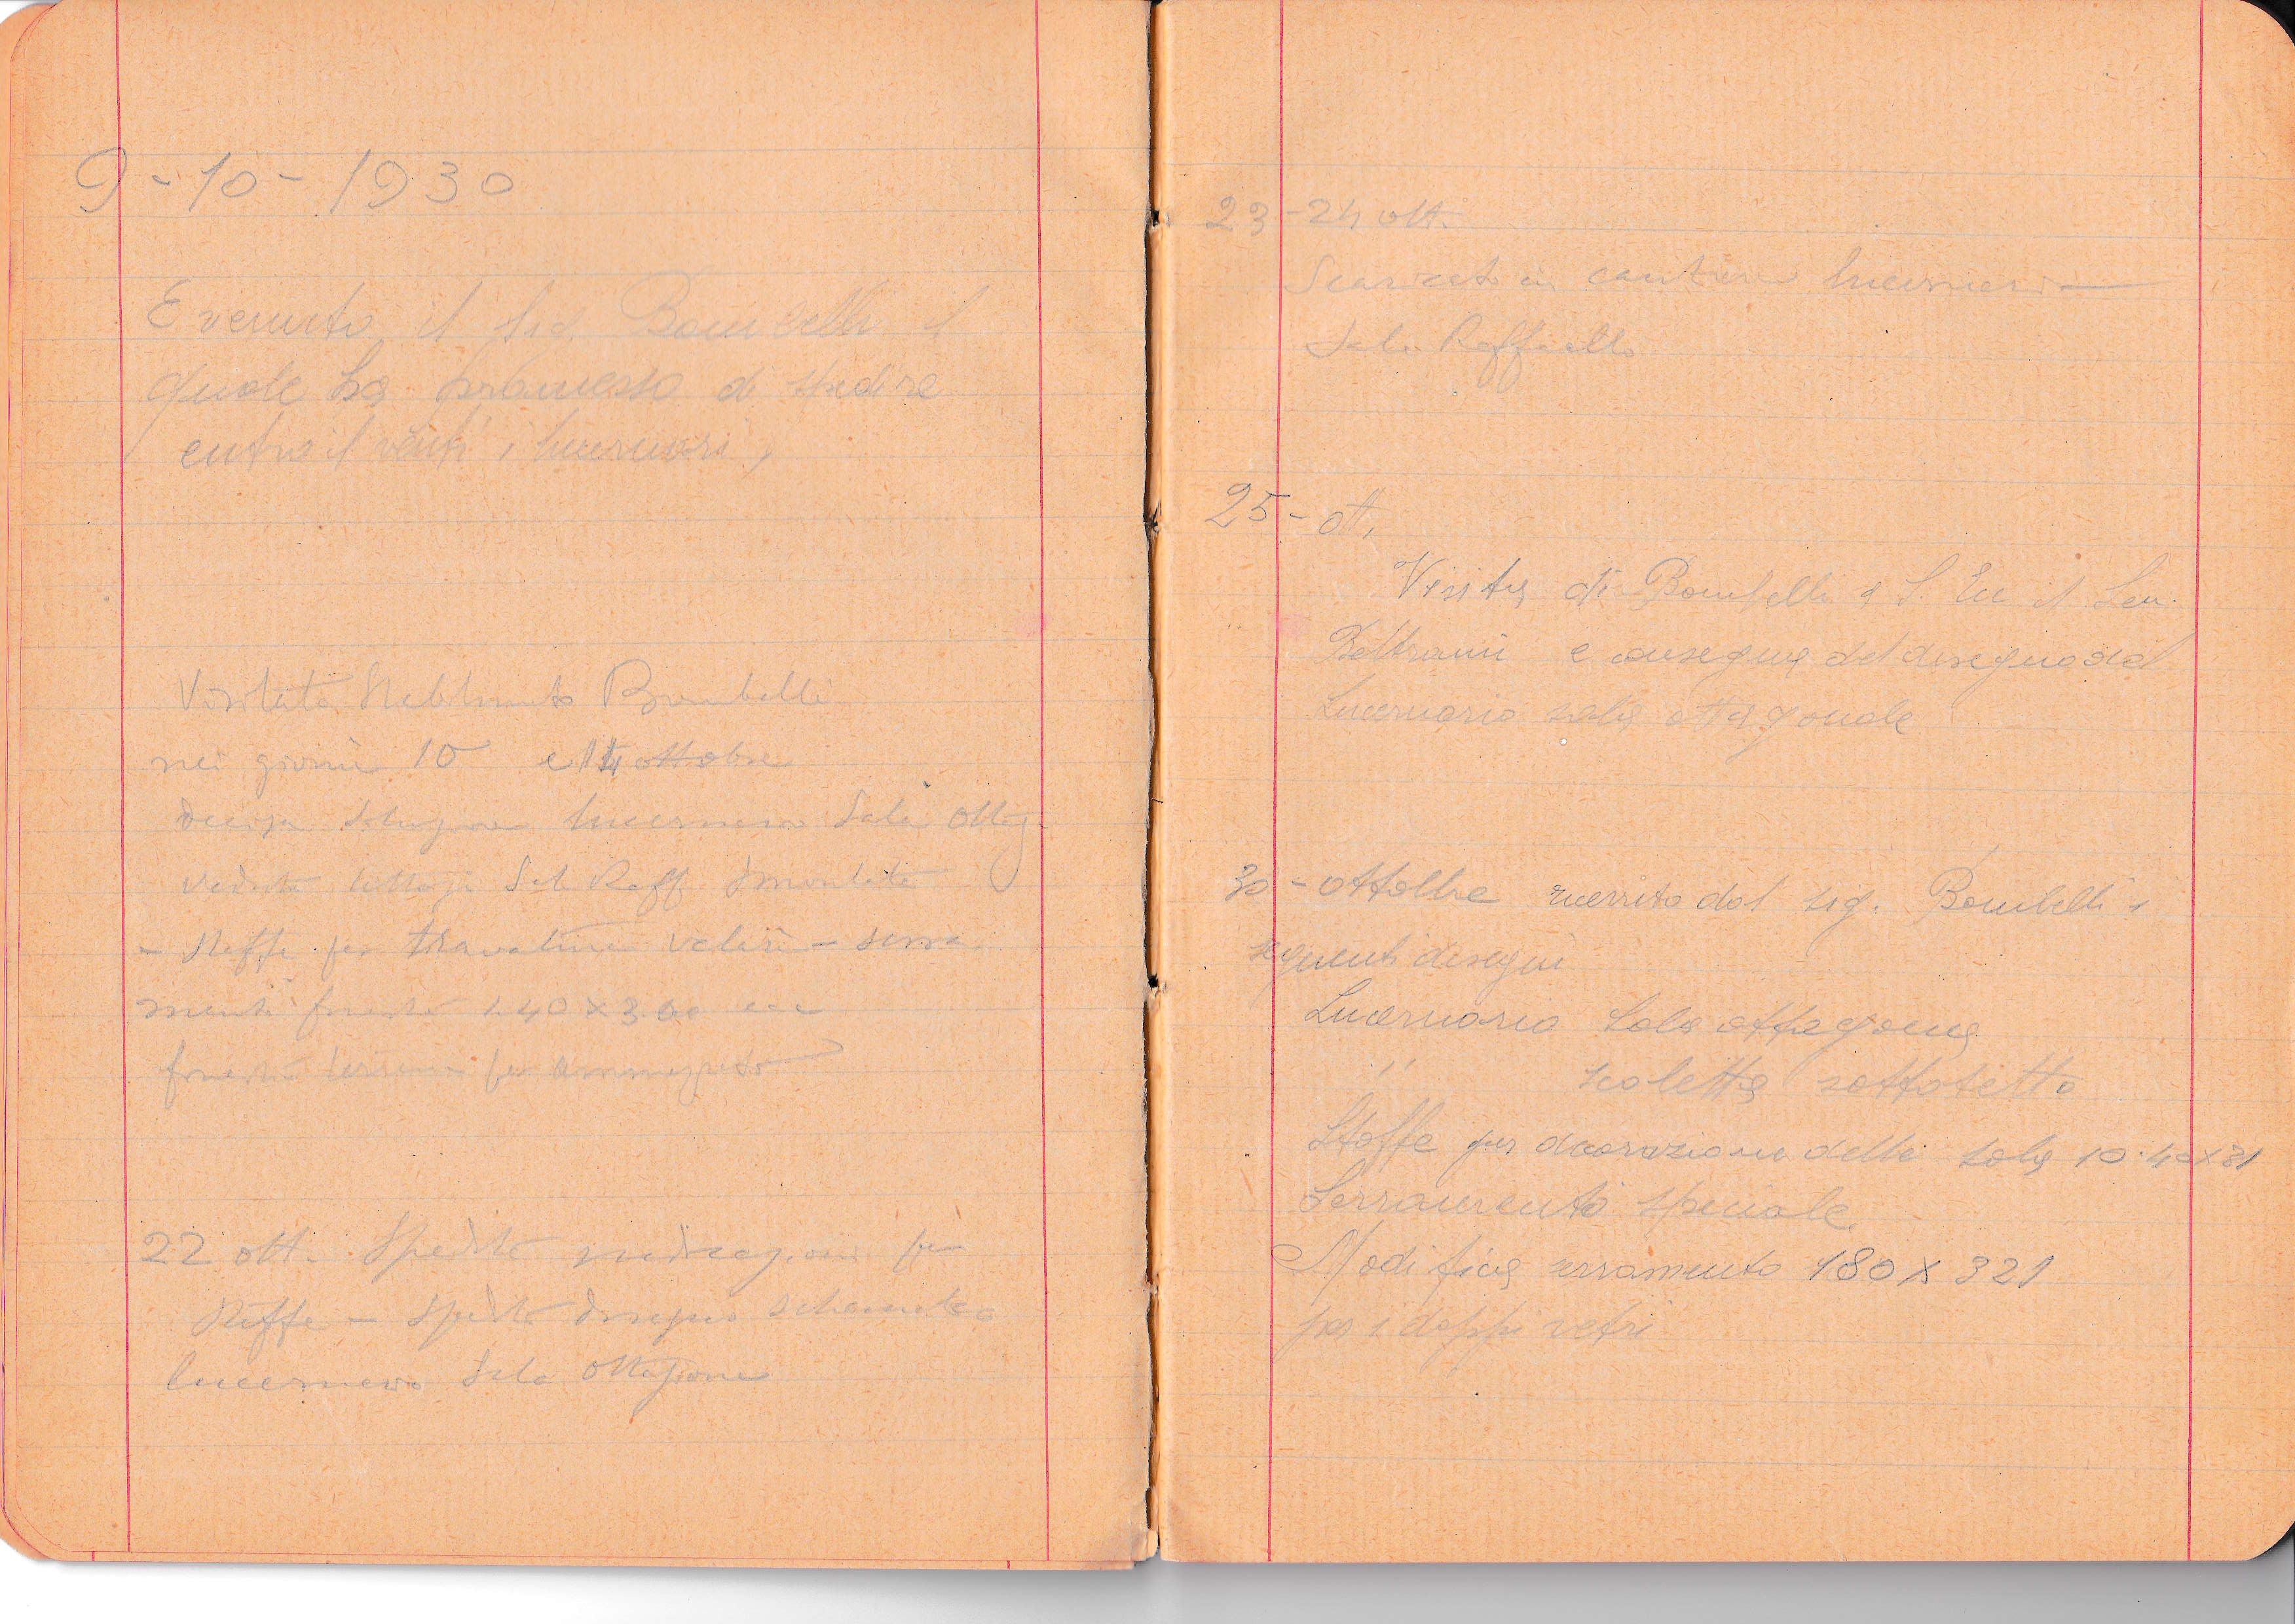 9-10-1930
E venuto il sig. Bombelli il
quale ha promesso di spedire
entro il venti i lucernari,
Visitato Stabilimento Bombelli
nei giorni 10 e 14 ottobre
decisa soluzione lucernario Sala Ottag.
veduta Sala Raff. smontata
- Staffe per travature velari - serra
menti finestre 1.40 x 3.00 ecc
finestre per ammezzato
22 ott. Spedite indicazioni per
staffe - Spedito disegno schematico
lucernario Sala Ottagona
23-24 ott.
Scaricato in cantiere lucernario
Sala Raffaello
25-ott,
Visita di Bombelli a S. Ecc il Sen.
Beltrami e consegna del disegno del
Lucernario sala ottagonale
30-ottobre ricevuto dal sig. Bombelli i
seguenti disegni
Lucernario sala ottagona
" saletta sottotetto
Staffe per decorazione della sala 10.40x31
Serramento speciale
Modifica serramento 180 x 321
per i doppi vetri